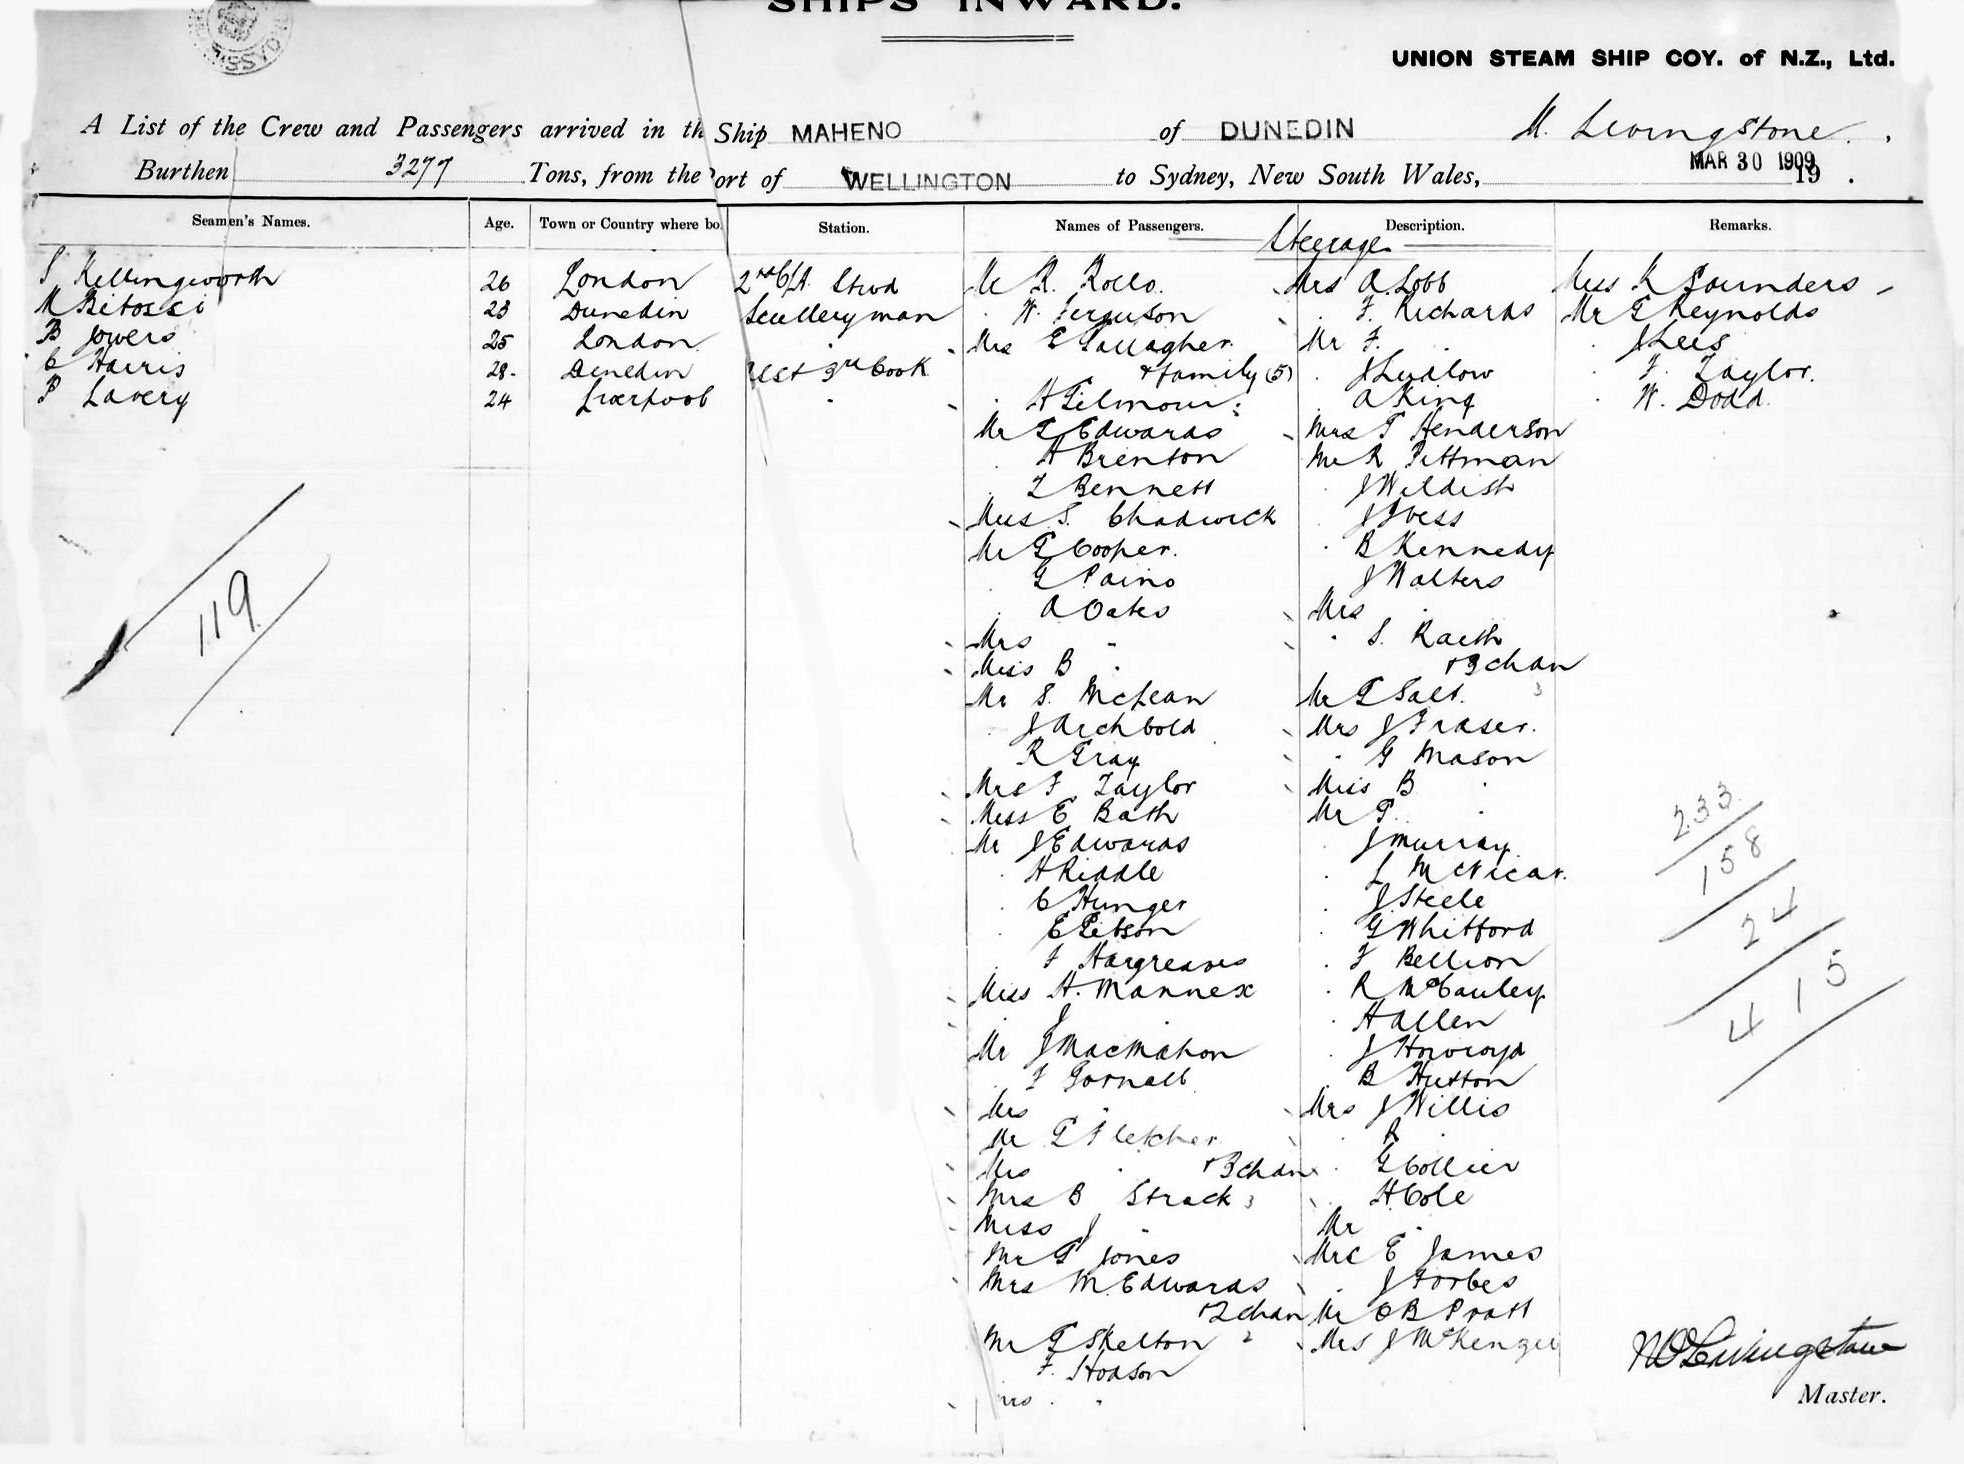 SHIPS INWARD.
UNION STEAM SHIP COY. of N.Z., Ltd.
A List of the Crew and Passengers arrived in th Ship MAHENO of DUNEDIN M. Livingstone.
Burthen 3277 Tons, from the ort of WELLINGTON to Sydney, New South Wales, MAR 30 1909 19 .
Seamen's Names. Age. Town or Country where bo Station. Names of Passengers. Description. Remarks.
Steerage
S Killingworth 26 London 2nd Stwd
M Bitossi 23 Dunedin Scullery man
B Jowers 25 London
C Harris 28. Dunedin 3rd Cook
P Lavery 24 Liverpool "
119
Mr R. Rollo.
" W. Ferguson
Mrs E Gallagher
& family (5)
" H Gilmour
Mr G Edwards
" H Brenton
" L Bennett
Miss S. Chadwick
Mr G Cooper.
" G Paino
" A Oates
Mrs "
Miss B "
Mr S. McLean
" J Archbold
R Gray
Mrs F Taylor
Miss E Bath
Mr J Edwards
" H Riddle
" C Hunger
" E Gibson
" F Hargreaves
Miss H. Mannex
" J "
Mr J MacMahon
" F Gornall
Mrs "
Mr G Fletcher
Mrs " & 3 chdn
Mrs B Strack 3
Miss J "
Mr G Jones
Mrs M. Edwards
& 2 chdn
Mr G Skelton 2
F. Hodson
Mrs "
Mrs A Lobb
" F. Richards
Mr F. "
" J Ludlow
" A King
Mrs T Henderson
Mr R Pittman
" J Wildish
" J Ivess
" B Kennedy
" J Walters
Mrs "
" S. Raeth
& 3 chdn
Mr G Salt. 3
Mrs J Fraser.
" G Mason
Miss B "
Mr G. "
" J Murray
" L McVicar.
" J Steele
" G Whitford
" F Bellion
" R McCauley
" H Allen
" J Howroyd
" B Hutton
Mrs J Willis
" R "
" G Collier
" H Cole
Mr "
Mrs E James
" J Forbes
Mr O B Pratt
Mrs J McKenzie
Miss K Saunders
Mr G Reynolds
" J Lees
" F. Taylor.
" W. Dodd.
233
158
24
415
Livingstone
Master.